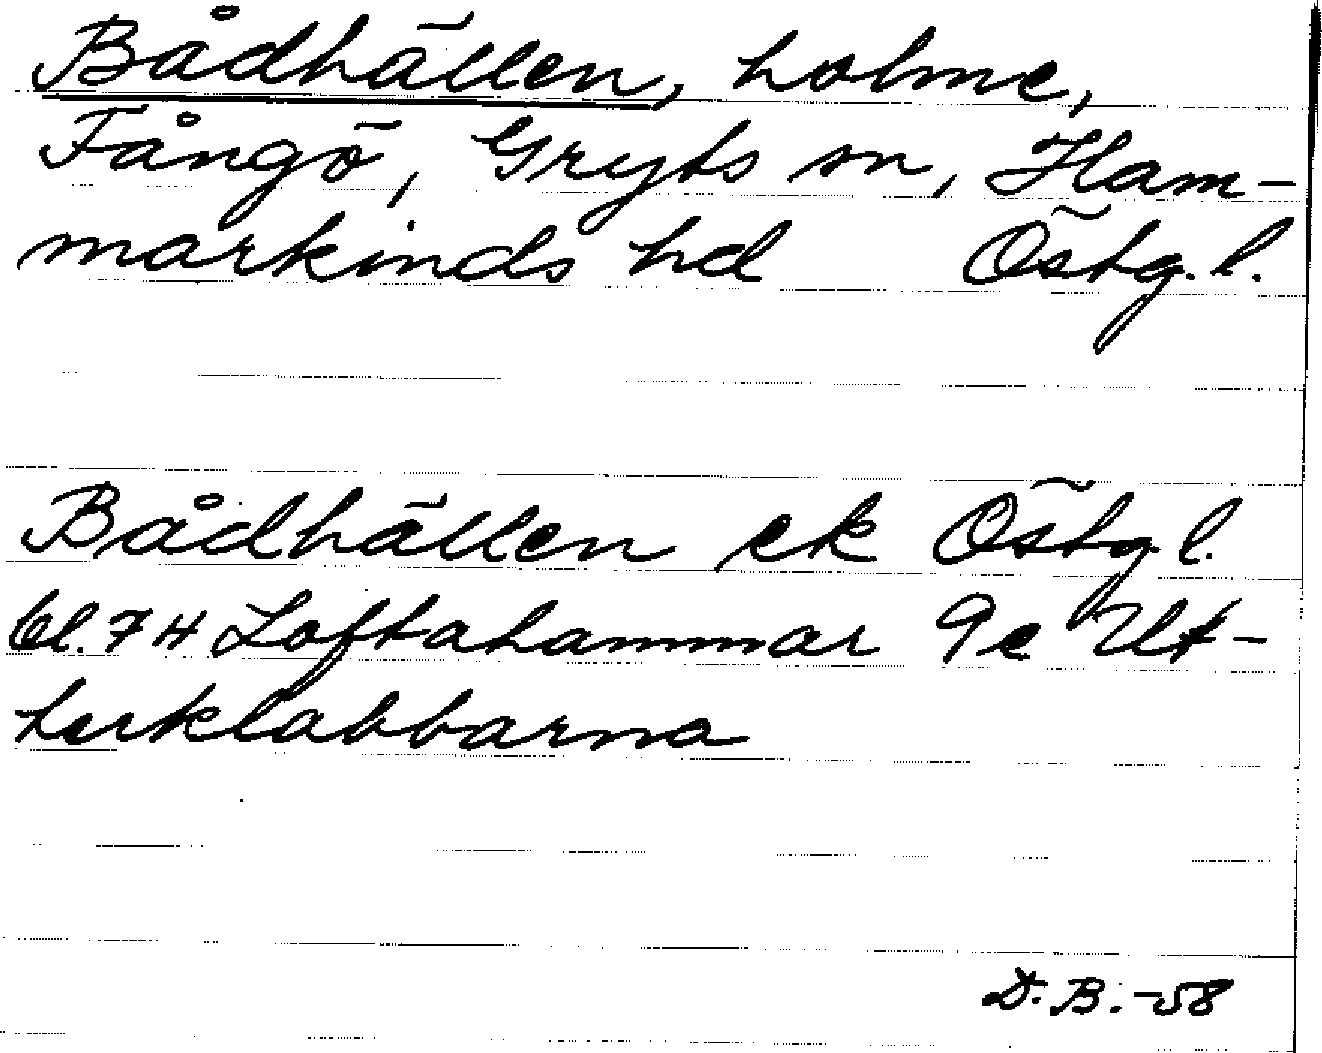 Bådhällen, holme,
Fångö, Gryts sn, Ham-
markinds hd Östg. l.
Bådhällen ek Östg. l.
bl. 7 H Loftahammar 9e Ut-
terklabbarna
D. B. -58